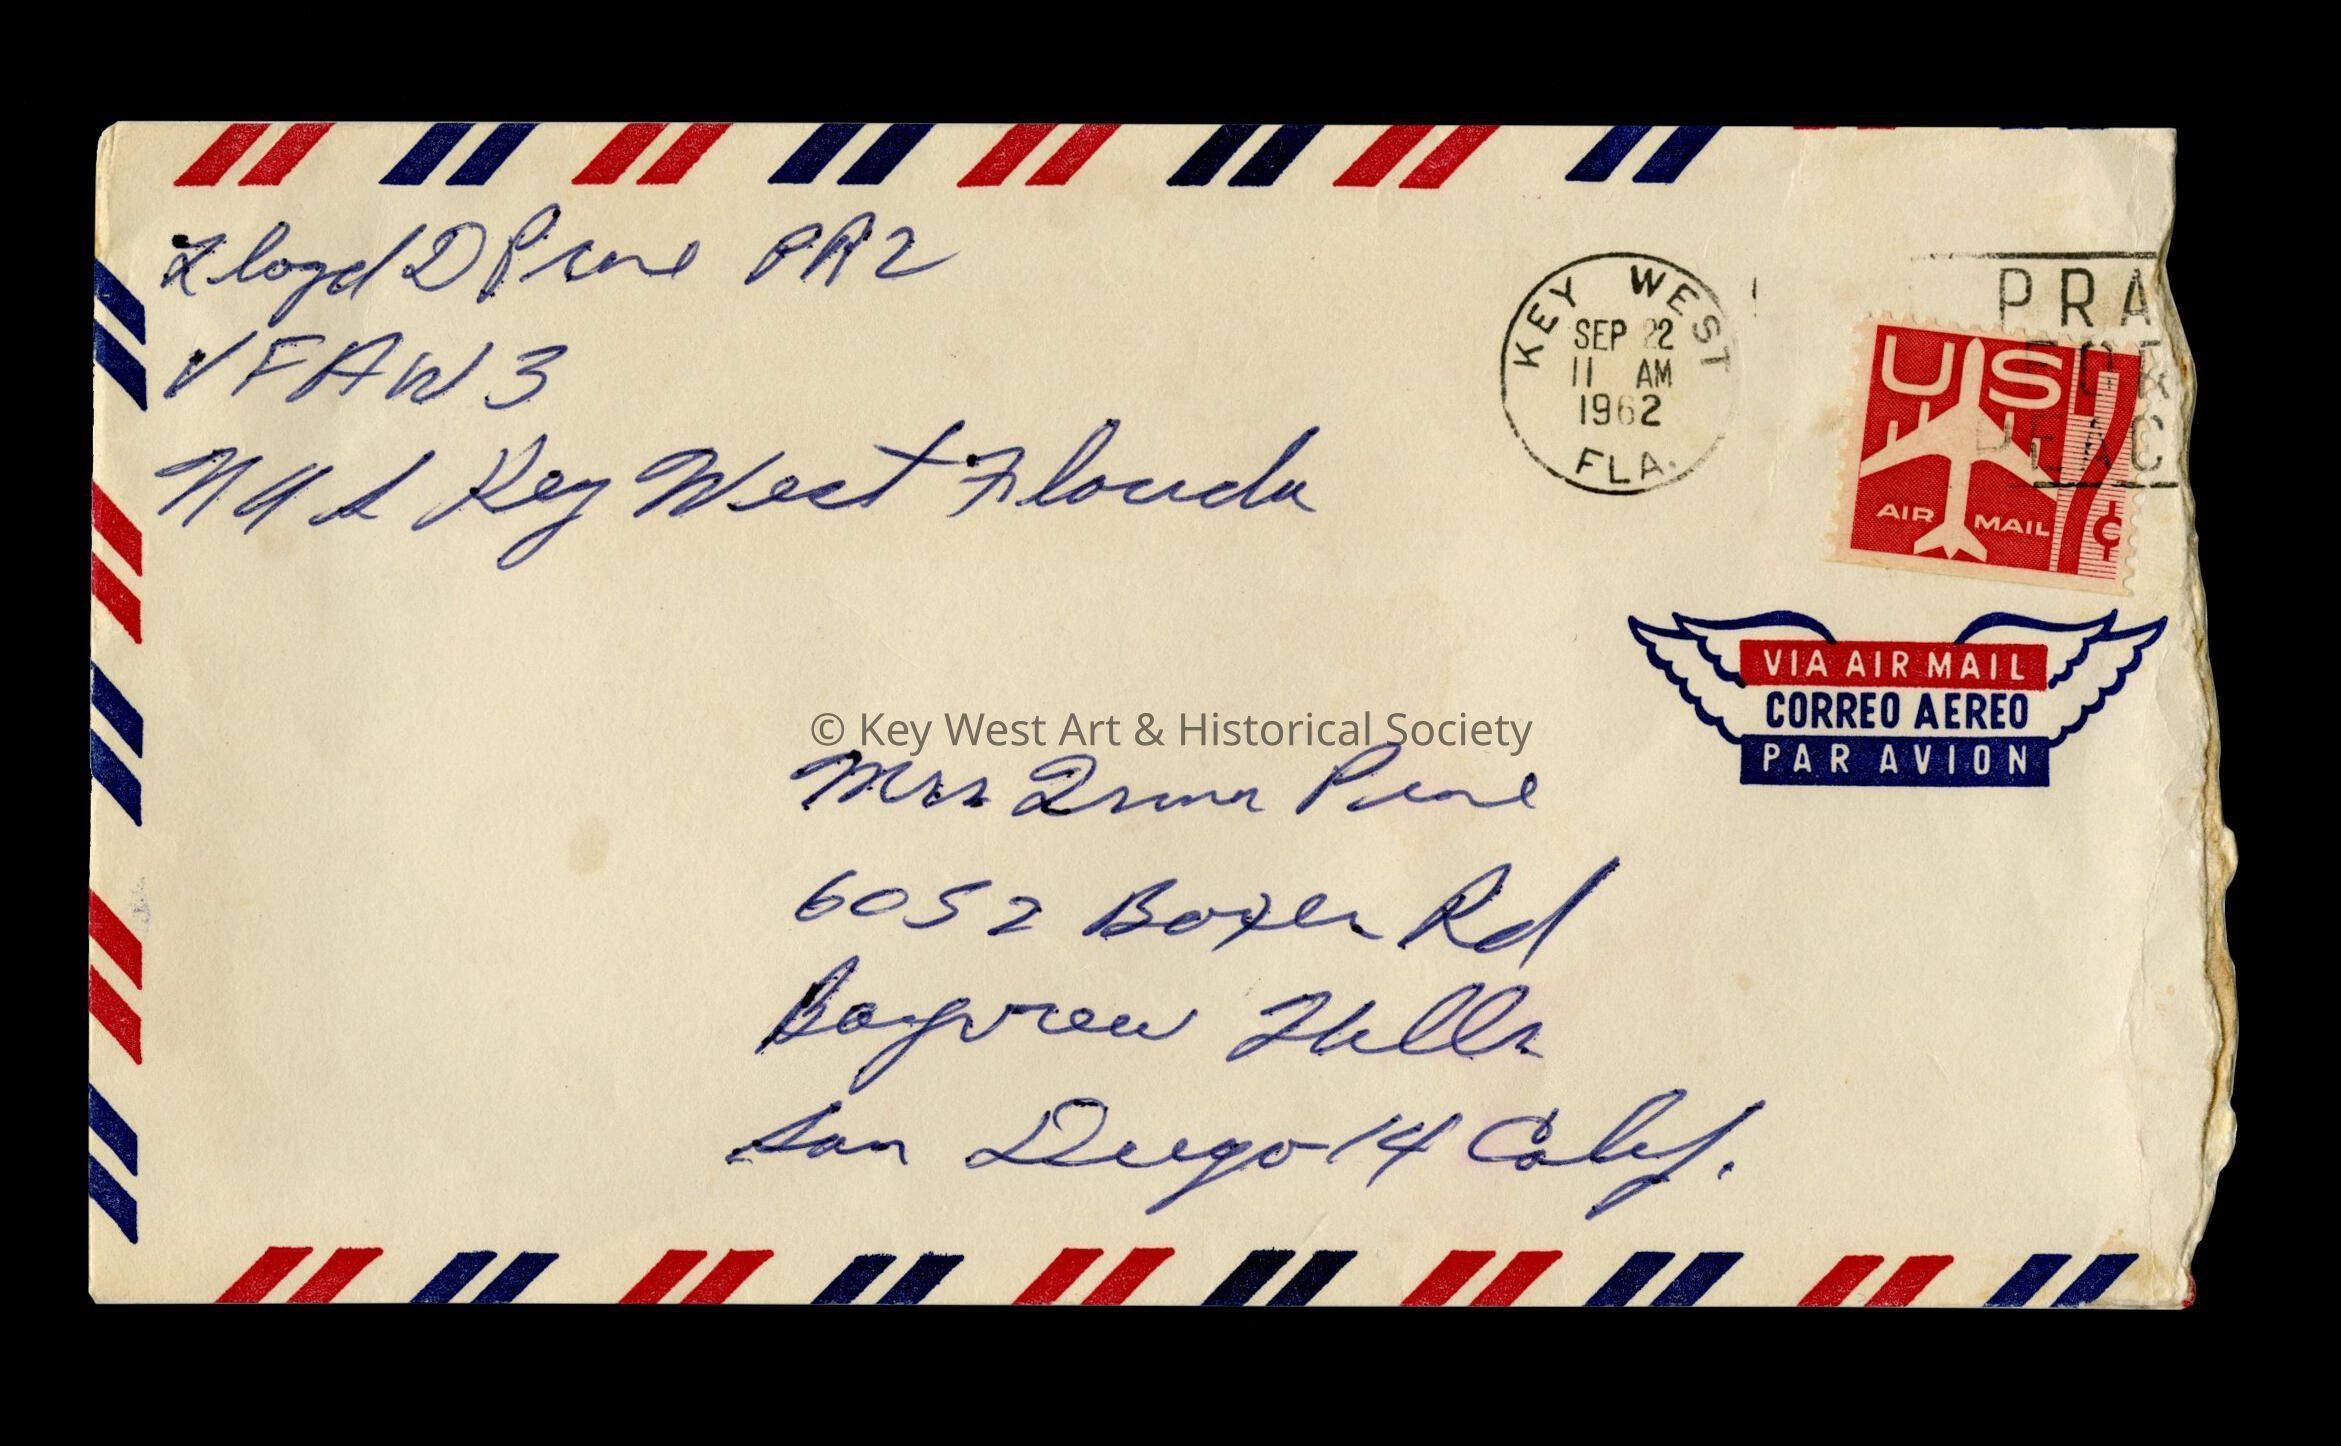 Lloyd D Pine PR2
VFAW 3
NAS Key West Florida
KEY WEST
SEP 22
11 AM
1962
FLA.
PRA
FOR
PEAC
US
7¢
AIR MAIL
VIA AIR MAIL
CORREO AEREO
PAR AVION
© Key West Art & Historical Society
Mrs Irma Pine
6052 Boxer Rd
Bayview Hills
San Diego 14 Calif.